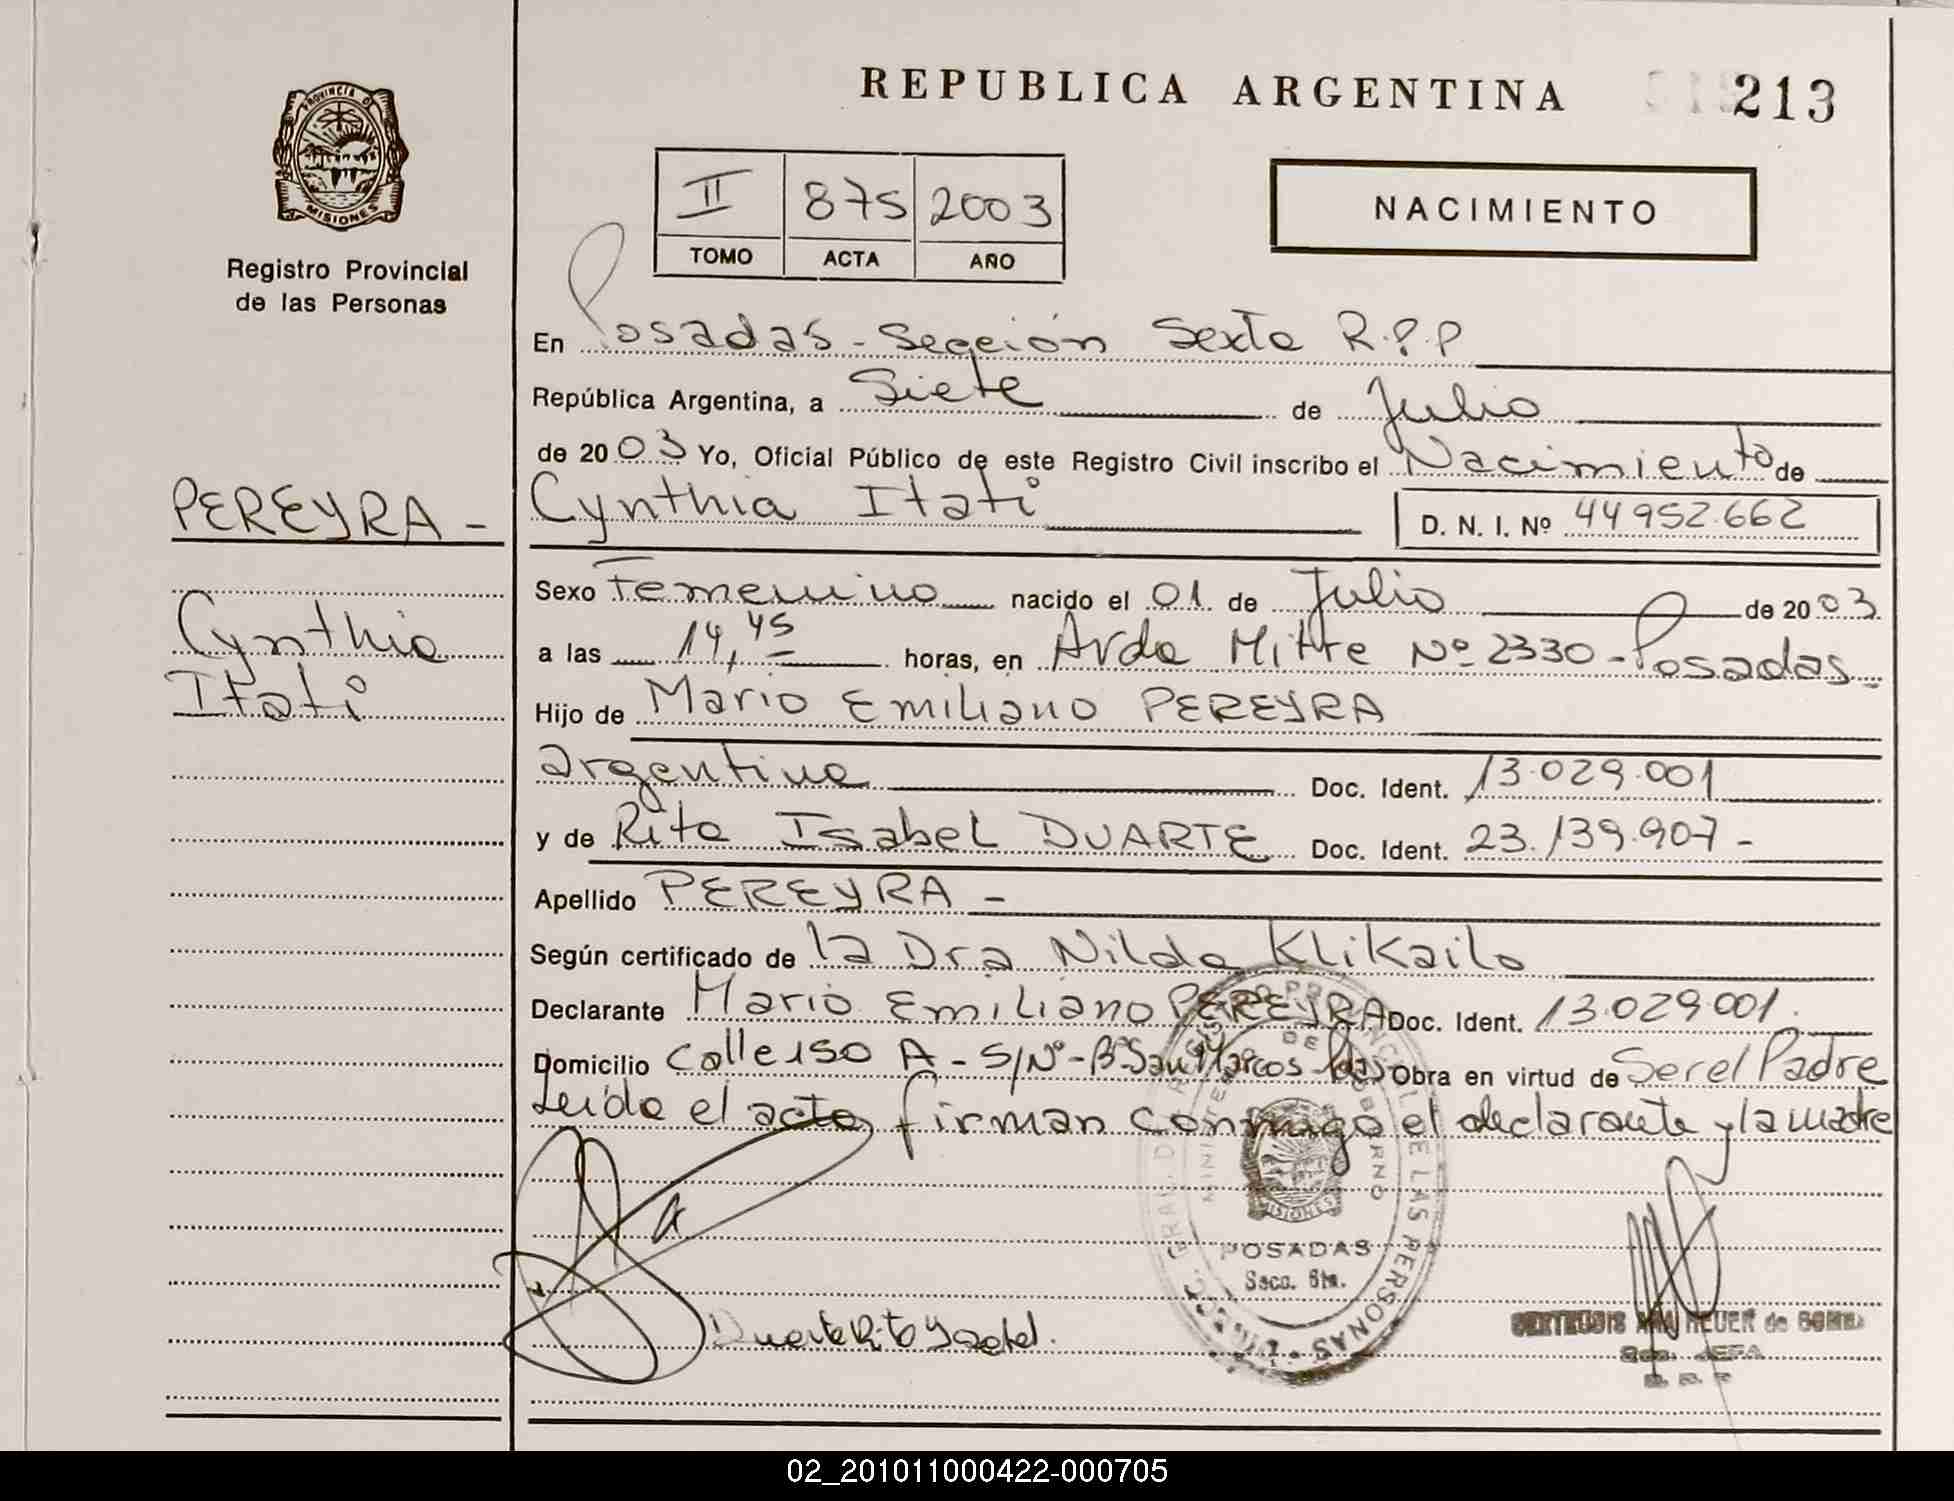 REPUBLICA ARGENTINA
213
PROVINCIA D
MISIONES
Registro Provincial
de las Personas
II 875 2003
TOMO ACTA AÑO
NACIMIENTO
En Posadas - Sección Sexta R.P.P
República Argentina, a Siete de Julio
de 2003 Yo, Oficial Público de este Registro Civil inscribo el Nacimiento de
PEREYRA -
Cynthia Itatí
D. N. I. Nº 44952.662
Cynthia
Itatí
Sexo Femenino nacido el 01 de Julio de 2003
a las 14,45 horas, en Avda Mitre Nº 2330 - Posadas
Hijo de Mario Emiliano PEREYRA
argentina Doc. Ident. 13.029.001
y de Rita Isabel DUARTE Doc. Ident. 23.139.907 -
Apellido PEREYRA -
Según certificado de la Dra Nilda Klikailo
Declarante Mario Emiliano PEREYRA Doc. Ident. 13.029001.
Domicilio Calle 150 A - S/Nº - Bº San Marcos Pdas Obra en virtud de Ser el Padre
Leida el acta, firman conmigo el declarante y la madre
MINISTERIO DE GOBIERNO
DE LAS PERSONAS
MISIONES
POSADAS
Secc. 6ta.
Duarte Rita Ysabel.
de
JEFA
02_201011000422-000705